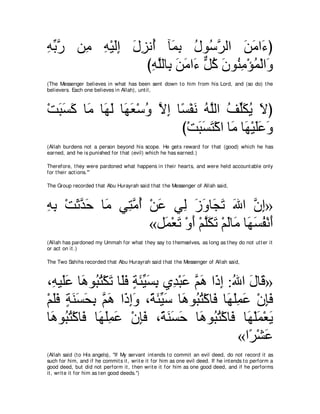 (ءَامَنَ الرَّسُولُ بِمَآ أُنزِلَ إِلَيْهِ مِن رَّبِّهِ
وَالْمُؤْمِنُونَ كُلٌّ ءَامَنَ بِاللَّهِ)
(The Messenger believes in what has been sent down to him from his Lord, and (so do) the
believers. Each one believes in Allah), until,
(لاَ يُكَلِّفُ اللَّهُ نَفْسًا إِلاَّ وُسْعَهَا لَهَا مَا كَسَبَتْ
وَعَلَيْهَا مَا اكْتَسَبَتْ)
(Allah burdens not a person beyond his scope. He gets reward for that (good) which he has
earned, and he is punished for that (evil) which he has earned.)
Therefore, they were pardoned what happens in their hearts, and were held accountable only
for their actions."'
The Group recorded that Abu Hurayrah said that the Messenger of Allah said,
«إِنَّ اللهَ تَجَاوَزَ لِي عَنْ أُمَّتِي مَا حَدَّثَتْ بِهِ
أَنْفُسَهَا مَالَمْ تَكَلَّمْ أَوْ تَعْمَلْ»
(Allah has pardoned my Ummah for what they say to themselves, as long as they do not utter it
or act on it.)
The Two Sahihs recorded that Abu Hurayrah said that the Messenger of Allah said,
«قَالَ اللهُ: إِذَا هَمَّ عَبْدِي بِسَيِّئَةٍ فَلَا تَكْتُبُوهَا عَلَيْهِ،
فَإِنْ عَمِلَهَا فَاكْتُبُوهَا سَيِّئَةً، وَإِذَا هَمَّ بِحَسَنَةٍ فَلَمْ
يَعْمَلْهَا فَاكْتُبُوهَا حَسَنَةً، فَإِنْ عَمِلَهَا فَاكْتُبُوهَا
عَشْرًا»
(Allah said (to His angels), "If My servant intends to commit an evil deed, do not record it as
such for him, and if he commits it, write it for him as one evil deed. If he intends to perform a
good deed, but did not perform it, then write it for him as one good deed, and if he performs
it, write it for him as ten good deeds.")